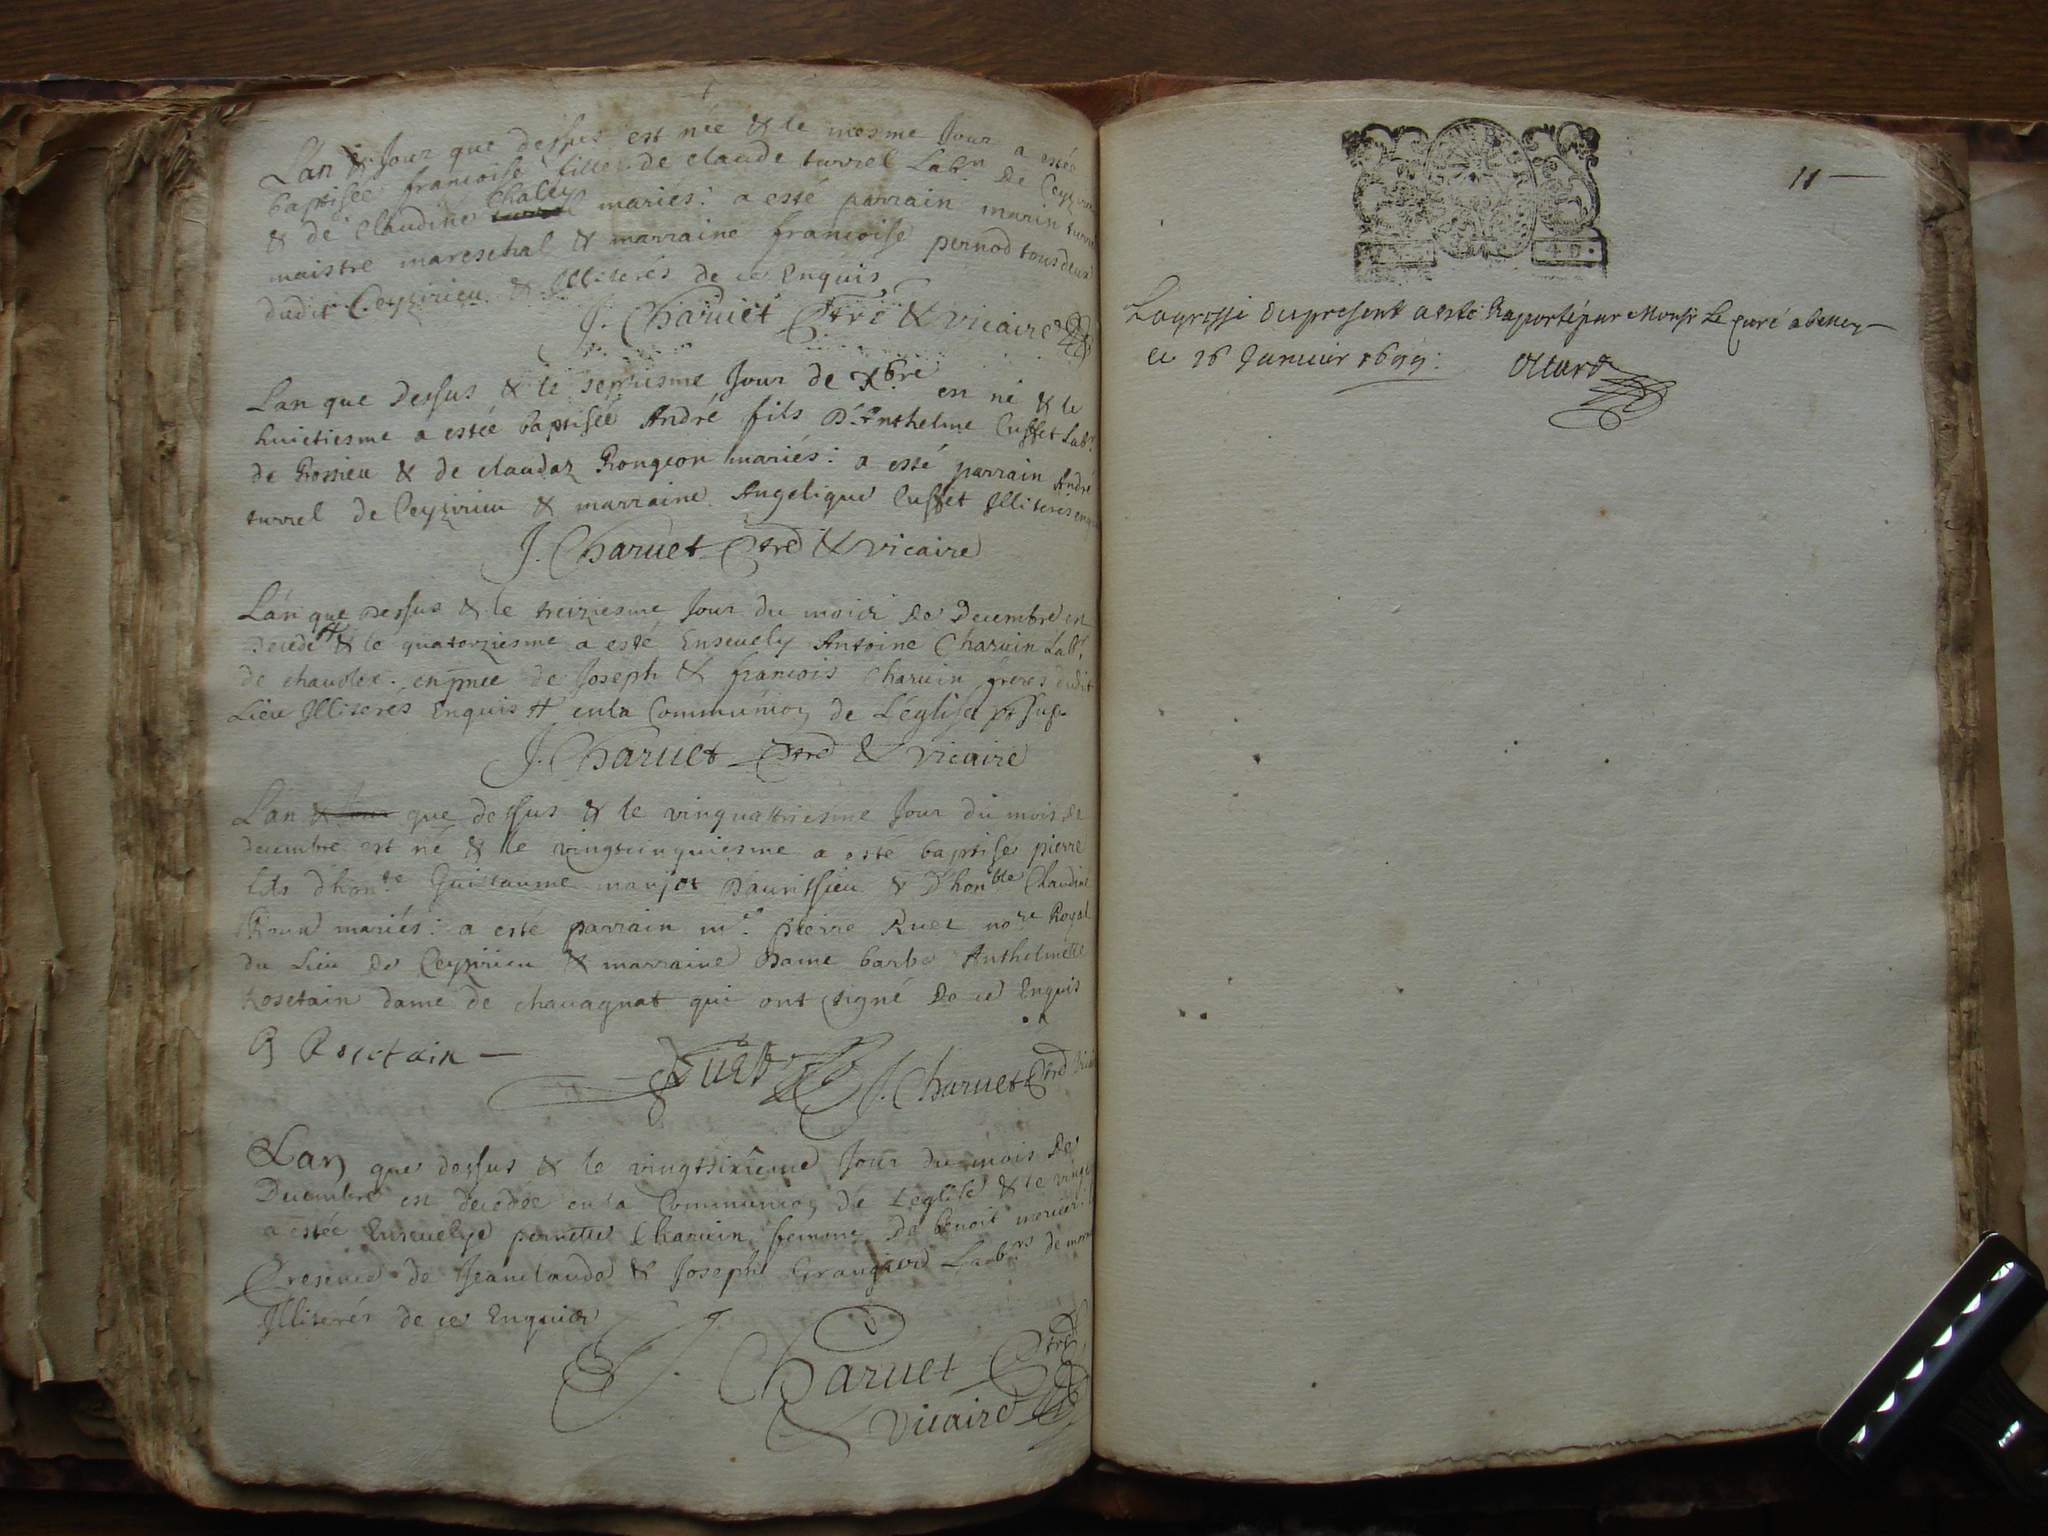 Lan & Jour que dessus est née & le mesme Jour a estée
baptisée francoise fille de claude turrel Labr. De Ceyzirieu
& de Claudine Chaley mariés: a esté parrain marin turrel
maistre mareschal & marraine francoise pernod tous deux
dudit Ceyzirieu & Illiterés de ce Enquis
J. Charuet Ptre & vicaire
Lan que Dessus & le septiesme Jour de Xbre est né & le
huictiesme a estée baptisée André fils D'Anthelme Cusset Labr.
de Rossieu & de claudaz Rongeon mariés: a esté parrain André
turrel de Ceyzirieu & marraine Angelique Cusset Illiterés
J. Charuet Ptre & vicaire
Lan que Dessus & le treiziesme Jour du mois De Decembre est
Decedé # & le quatorziesme a esté Enseuely Antoine Charuin Labr.
de chauolex. en pnce de Joseph & francois Charuin freres dudit
Lieu Illiteres Enquis # en la Communion de L'eglise
J. Charuet Ptre & vicaire
Lan & Jour que dessus & le vingquattriesme Jour du mois de
decembre est né & le vingtcinquiesme a esté baptisé pierre
fils d'honble Guillaume marjot D'auritsieu & D'honble Claudine
mariés: a esté parrain me. pierre Ruet nore Royal
du Lieu De Ceyzirieu & marraine Dame barbe Anthelmette
Rosetain dame de chauagnat qui ont signé De ce Enquis
B Rosetain —
Ruet J. Charuet Ptre Vicaire
Lan que dessus & le vingtsixieme Jour du mois De
Decembre est decedée en la Communion de L'eglise & le
a estée Enseuelye pernette Charuin femme De benoit mercier
Presence de Jeanclaude & Joseph Grangier Labrs de
Illiterés de ce Enquis
J. Charuet Ptre
& Vicaire
11 —
4 D.
La grosse du present a esté Raporté par Monsr Le Curé a belley
ce 16 Januier 1699: